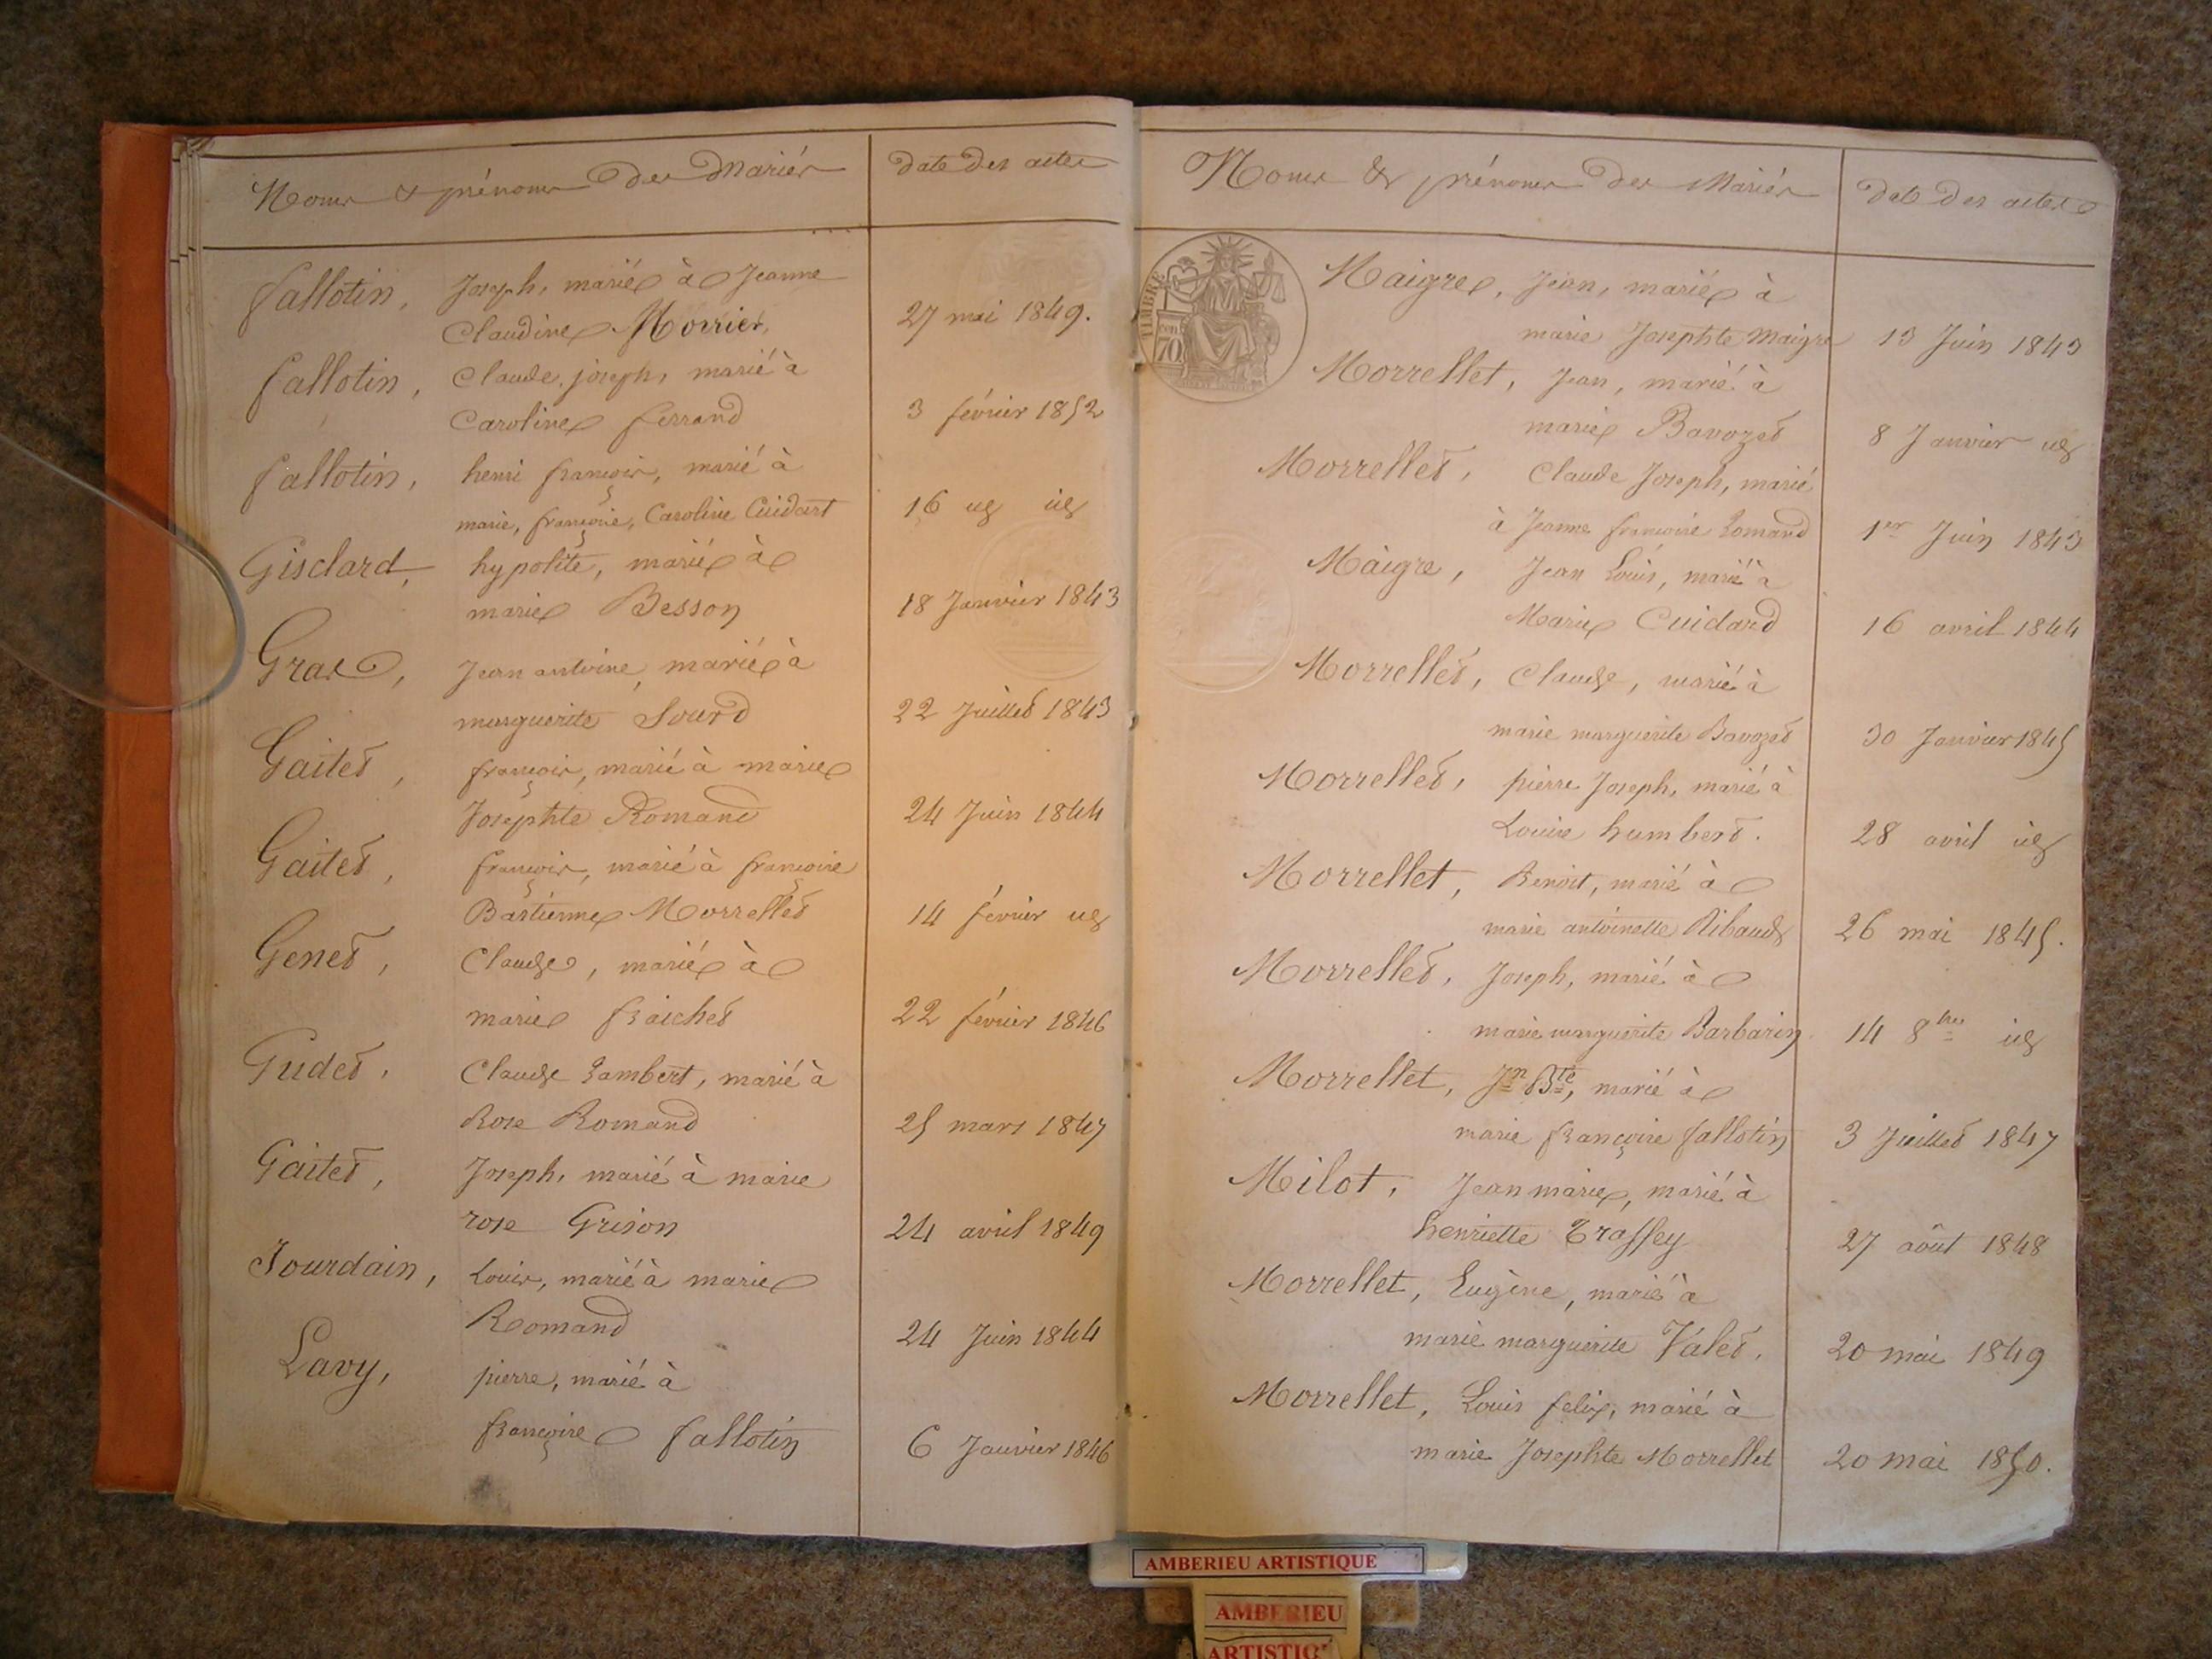 Noms & prénoms des Mariés
date des actes
fallotin, Joseph, marié à Jeanne
Claudine Morrier, 27 mai 1849.
fallotin, Claude joseph, marié à
Caroline ferrand 3 février 1852
fallotin, henri françois, marié à
marie, françoise, Caroline Cuidart 16 id id
Gisclard, hypolite, marié à
marie Besson 18 Janvier 1843
Jean antoine, marié à
marguerite Sourd 22 Juillet 1843
Gaitet, françois, marié à marie
Josephte Romand 24 Juin 1844
Gaitet, françois, marié à françoise
Bastienne Morrellet 14 février id
Genet, Claude, marié à
marie fraichet 22 février 1846
Gudet, Claude Lambert, marié à
Rose Romand 25 mars 1847
Gaitet, Joseph, marié à marie
rose Grison 24 avril 1849
Jourdain, Louis, marié à marie
Romand 24 Juin 1844
Lavy, pierre, marié à
françoise fallotin 6 Janvier 1846
Noms & prénoms des Mariés
date des actes
TIMBRE
70
Maigre, Jean, marié à
marie Josephte Maigre 13 Juin 1843
Morrellet, Jean, marié à
marie Bavozet 8 Janvier id
Morrellet, Claude Joseph, marié
à Jeanne françoise Romand 1er Juin 1843
Maigre, Jean Louis, marié à
Marie Cuidard 16 avril 1844
Morrellet, Claude, marié à
marie marguerite Bavozet 30 Janvier 1845
Morrellet, pierre Joseph, marié à
Louise humbert. 28 avril id
Morrellet, Benoit, marié à
marie antoinette Ribaud 26 mai 1845.
Morrellet, Joseph, marié à
marie marguerite Barbarin 14 8bre id
Morrellet, Jn Bte, marié à
marie françoise fallotin 3 Juillet 1847
Milot, Jean marie, marié à
henriette Traffey 27 août 1848
Morrellet, Eugène, marié à
marie marguerite Valet, 20 mai 1849
Morrellet, Louis felix, marié à
marie Josephte Morrellet 20 mai 1850.
AMBERIEU ARTISTIQUE
AMBERIEU
ARTISTIQ